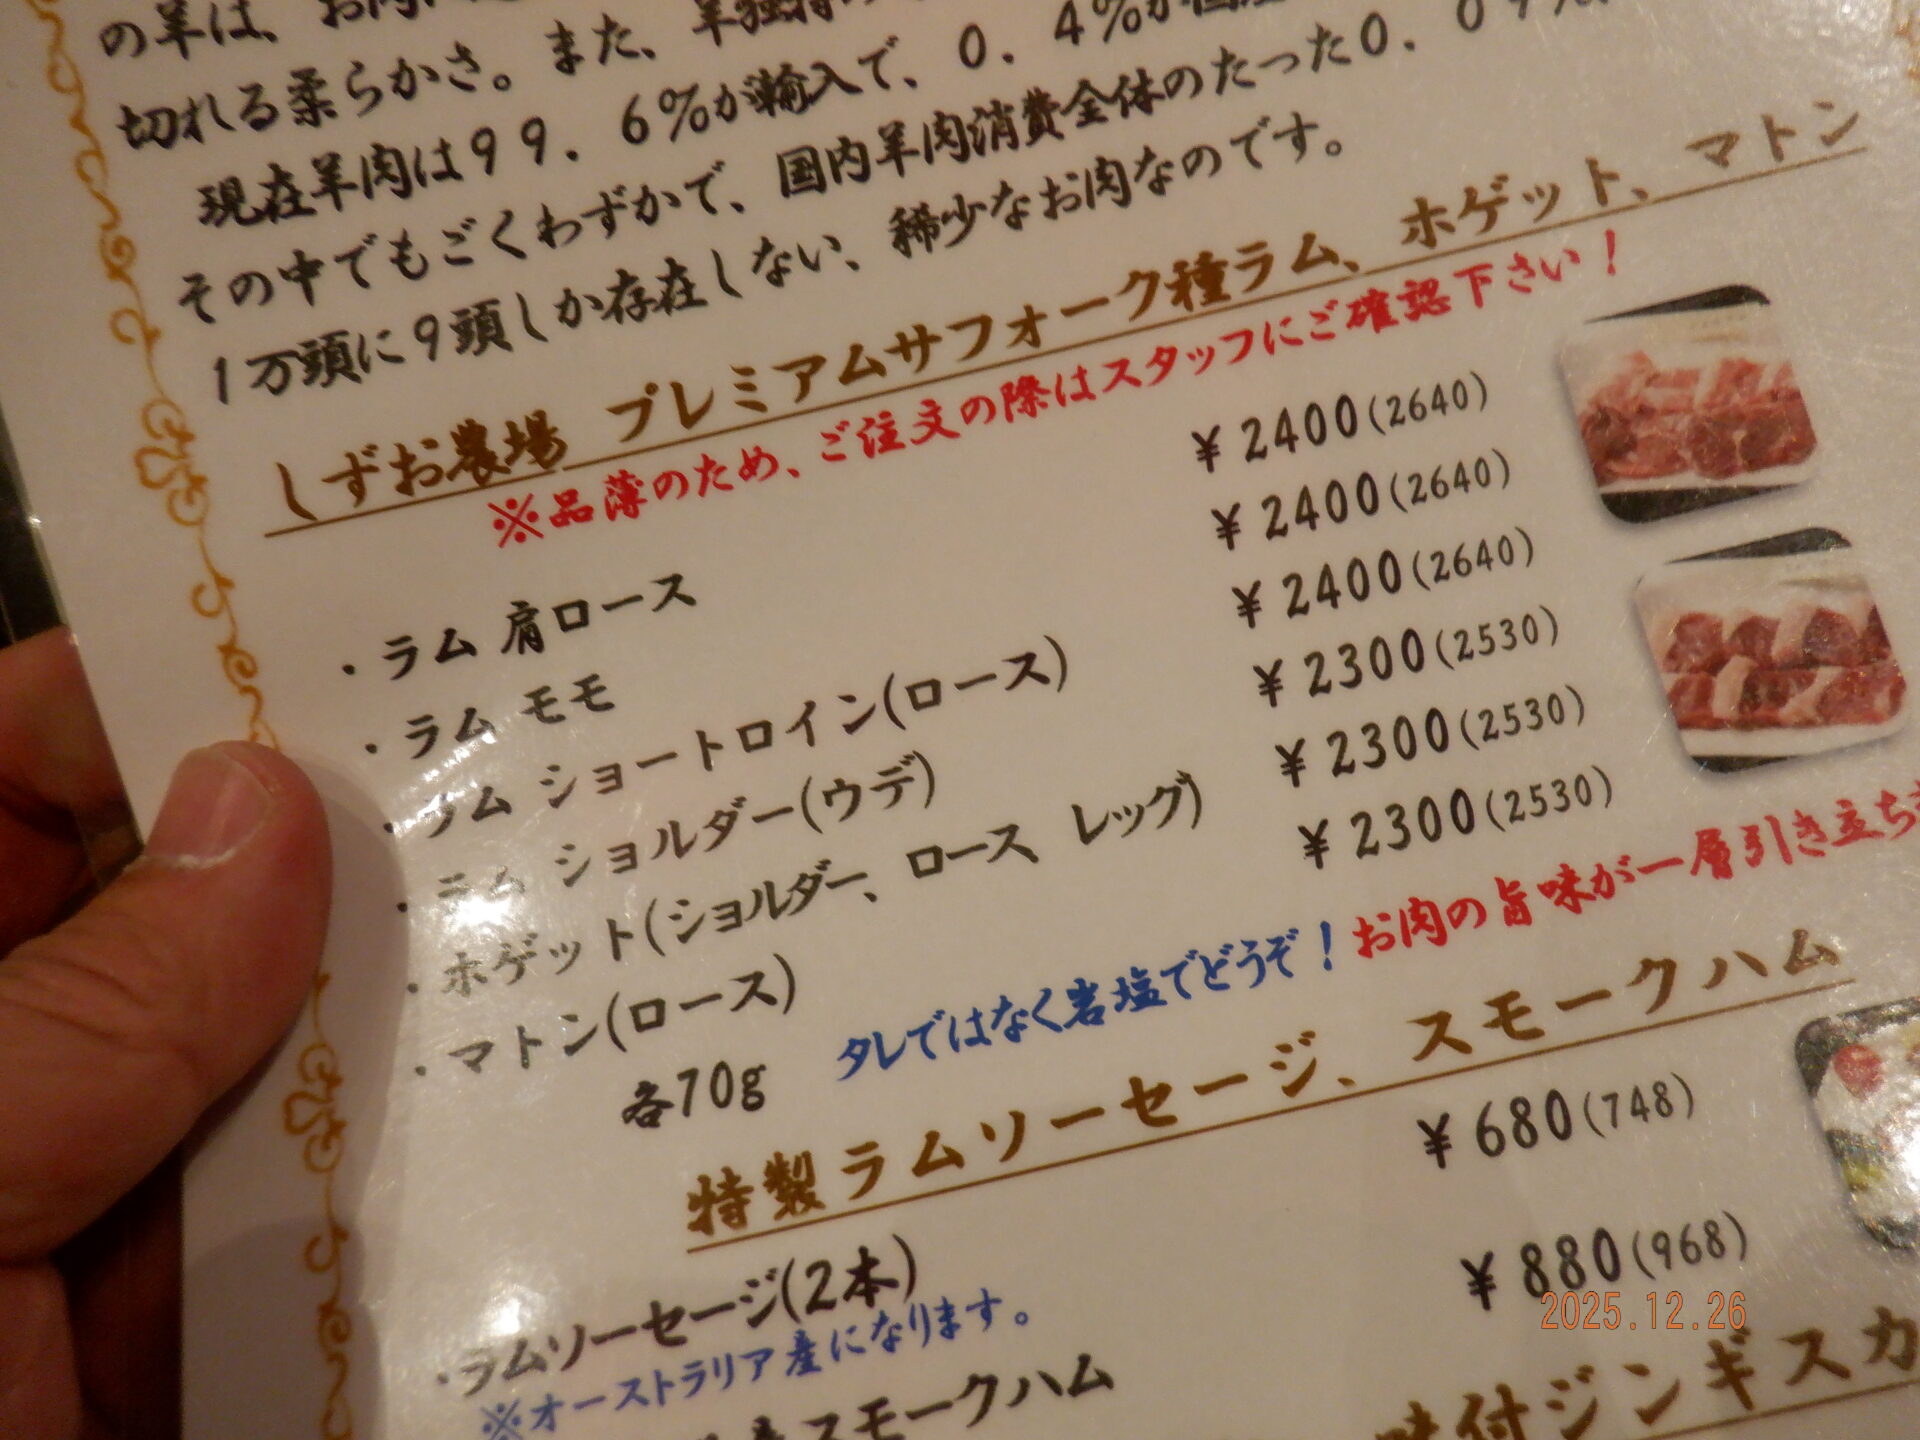 の羊は、お肉
切れる柔らかさ。また、羊独特の
現在羊肉は99.6%が輸入で、0.4%が国産
その中でもごくわずかで、国内羊肉消費全体のたった0.09%
1万頭に9頭しか存在しない、稀少なお肉なのです。
しずお農場 プレミアムサフォーク種ラム、ホゲット、マトン
※品薄のため、ご注文の際はスタッフにご確認下さい！
・ラム 肩ロース ¥2400(2640)
・ラム モモ ¥2400(2640)
・ラム ショートロイン(ロース) ¥2400(2640)
・ラム ショルダー(ウデ) ¥2300(2530)
・ホゲット(ショルダー、ロース レッグ) ¥2300(2530)
・マトン(ロース) ¥2300(2530)
各70g タレではなく岩塩でどうぞ！お肉の旨味が一層引き立ち
特製ラムソーセージ、スモークハム
・ラムソーセージ(2本) ¥680(748)
※オーストラリア産になります。
スモークハム ¥880(968)
味付ジンギスカ
2025.12.26